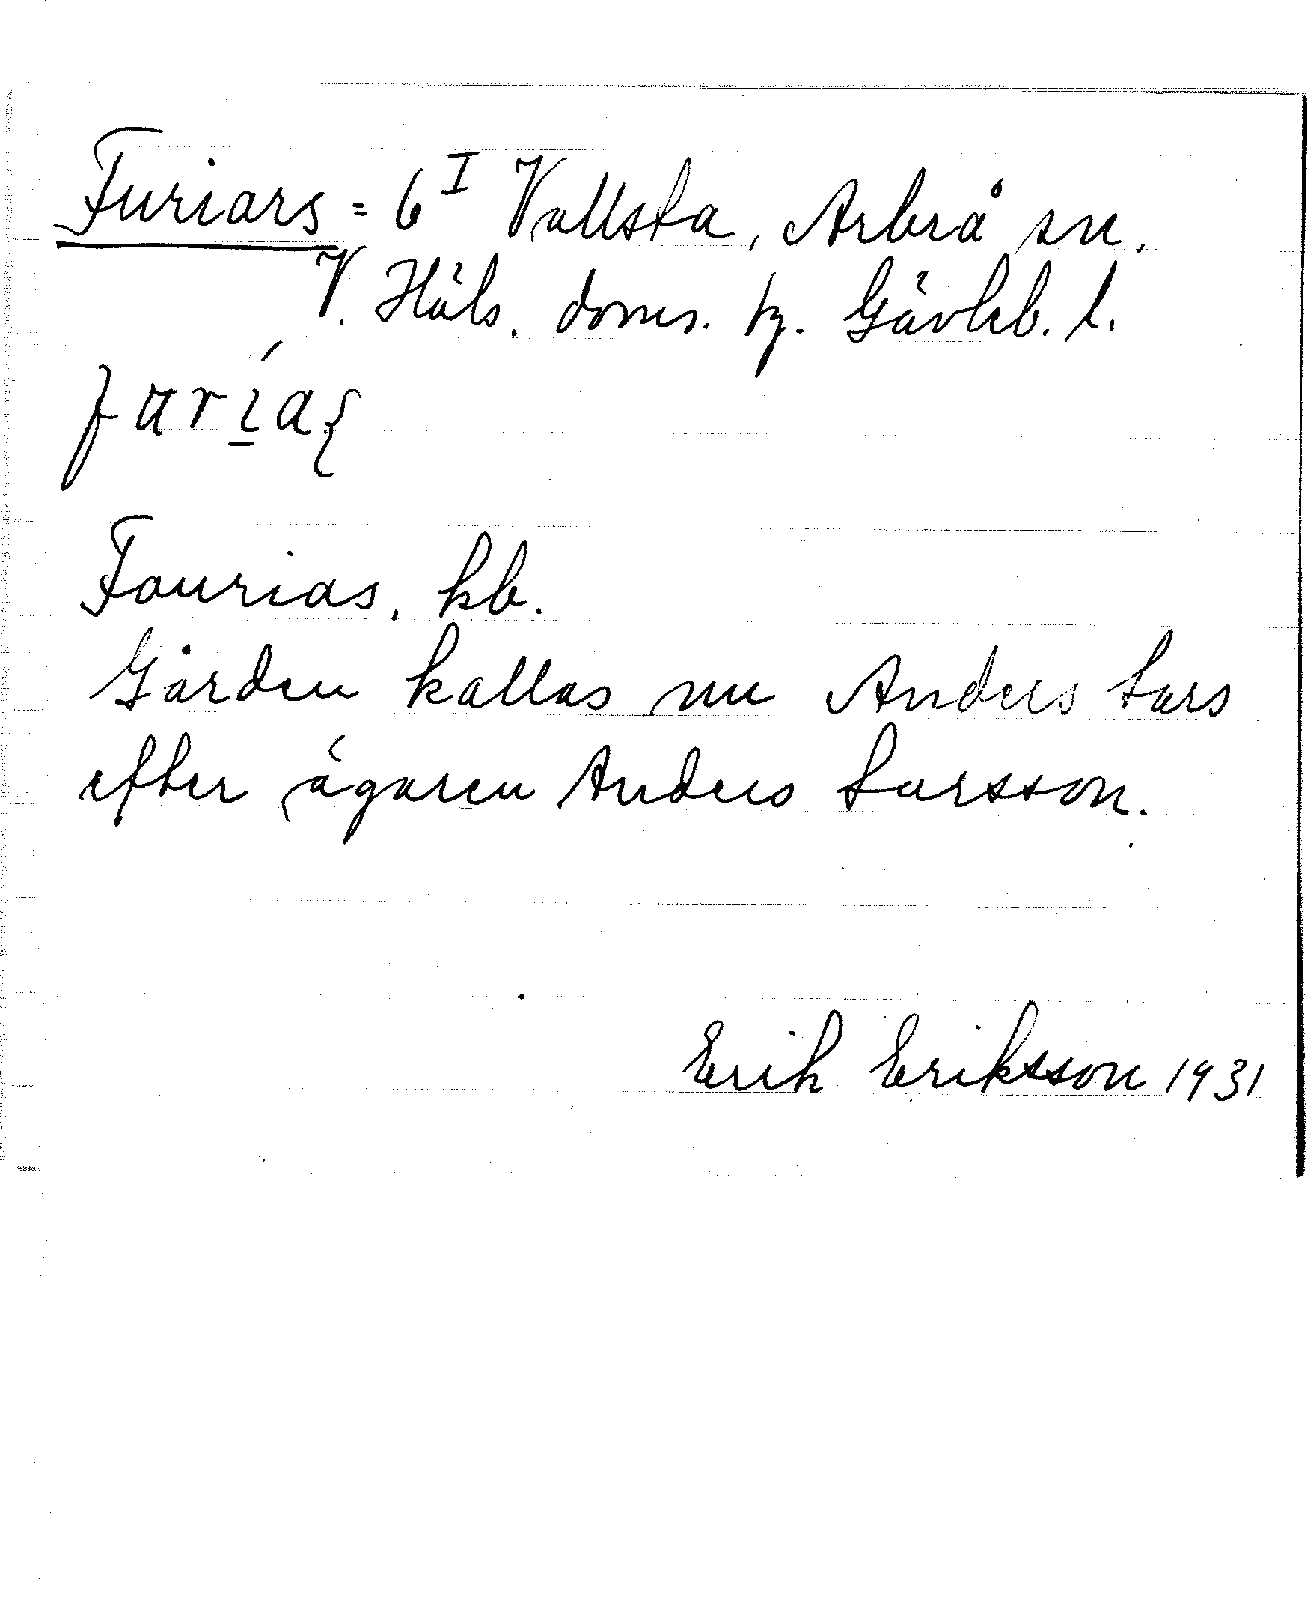 Furiars = 6 I Vallsta, Arbrå sn.
V. Häls. doms. tg. Gävleb. l.
Fourias, kb.
Gården kallas nu Anders Lars
efter ägaren Anders Larsson.
Erik Eriksson 1931